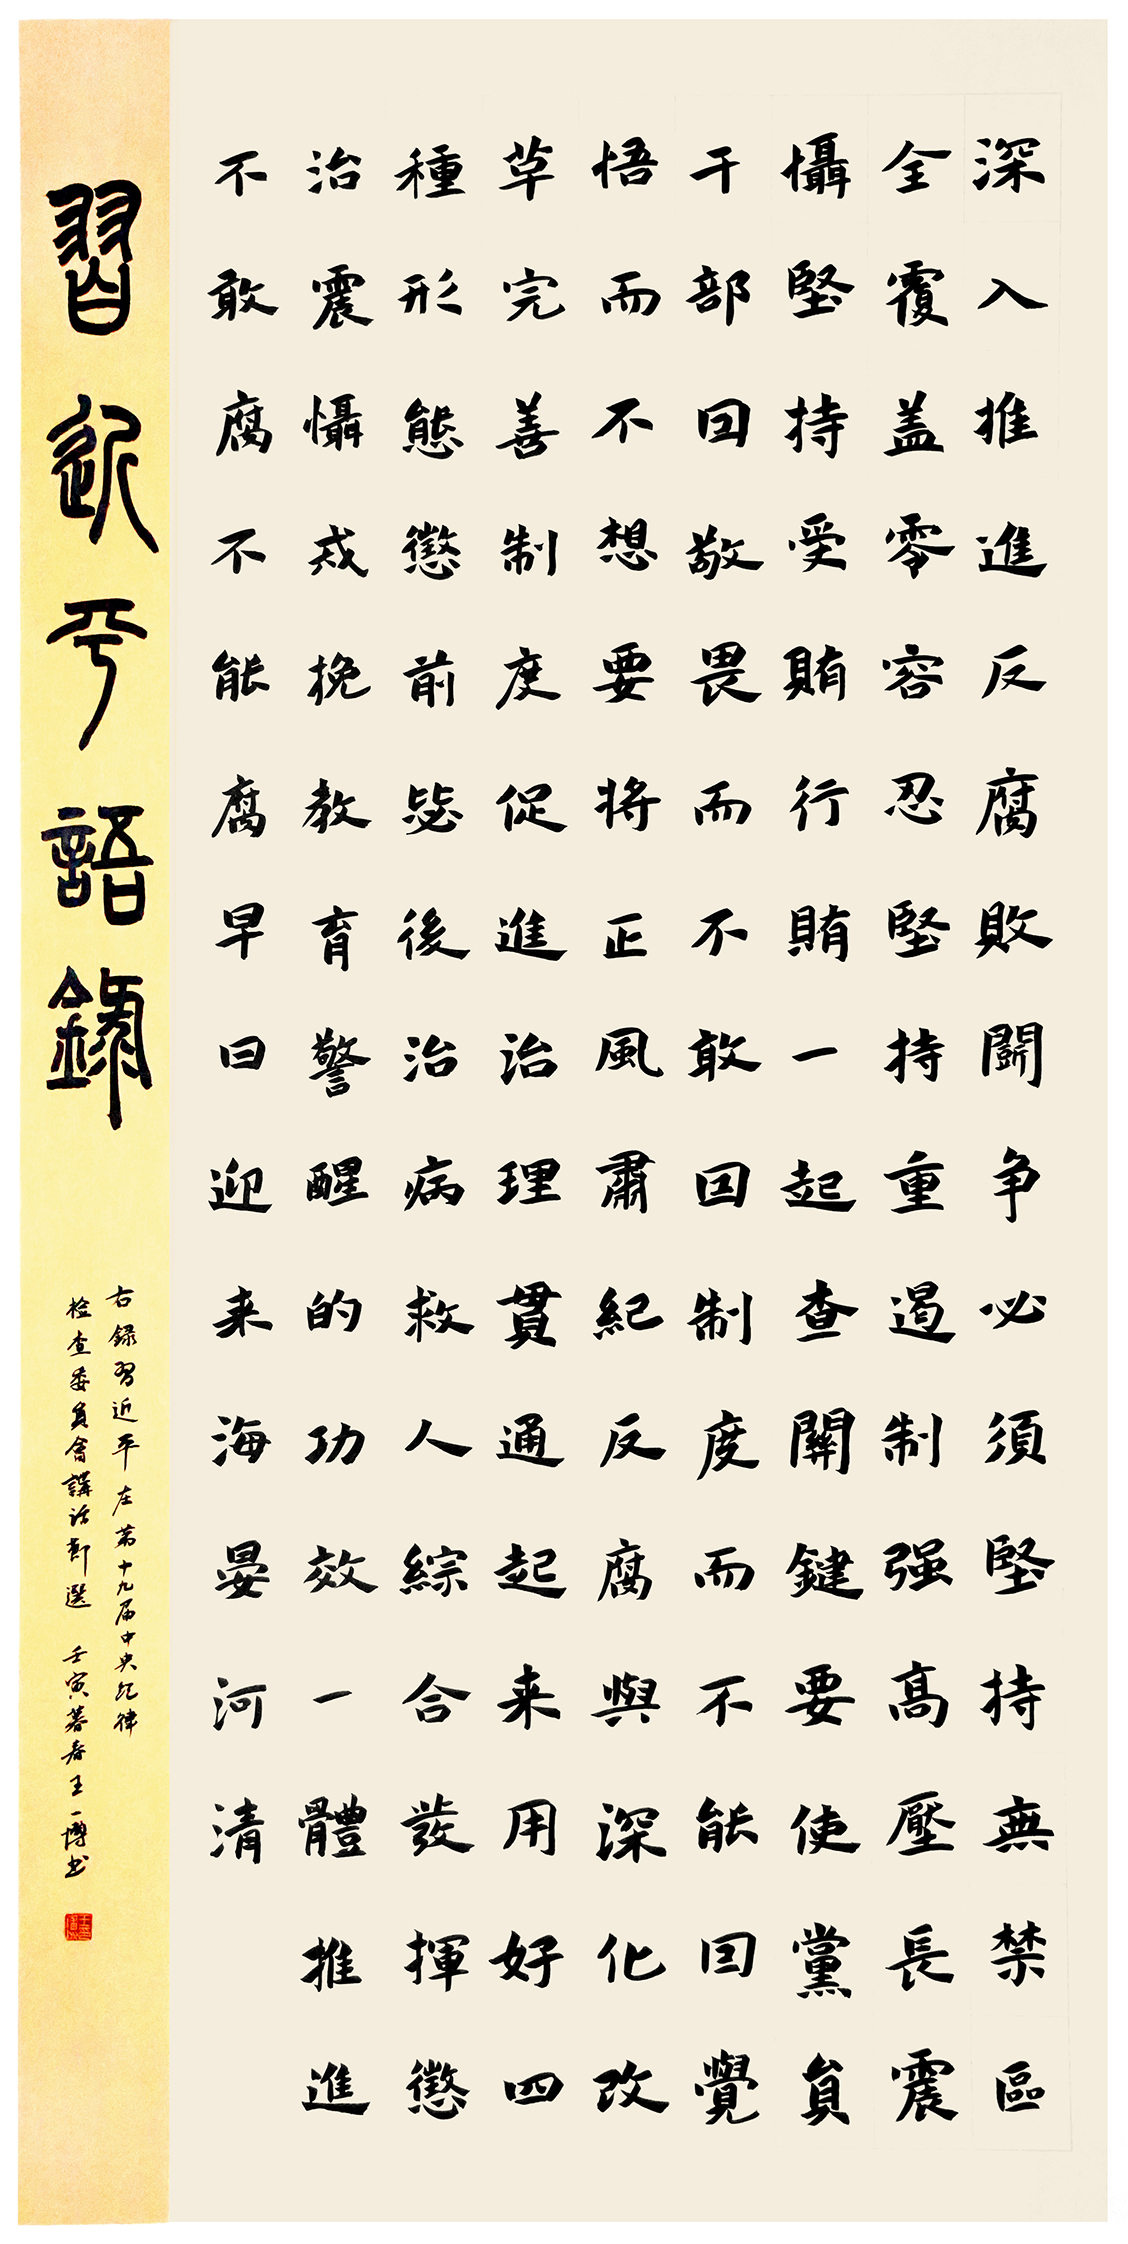 深入推進反腐敗鬭争必須堅持無禁區
全覆盖零容忍堅持重遏制强高壓長震
懾堅持受賄行賄一起查關鍵要使黨員
干部囙敬畏而不敢囙制度而不能囙覺
悟而不想要將正風肅紀反腐與深化改
草完善制度促進治理貫通起来用好四
種形態懲前毖後治病救人綜合發揮懲
治震懾戒挽教育警醒的功效一體推進
不敢腐不能腐早日迎来海晏河清
習近平語錄
右録習近平在第十九届中央纪律
检查委員會講话節選 壬寅暮春王一博书